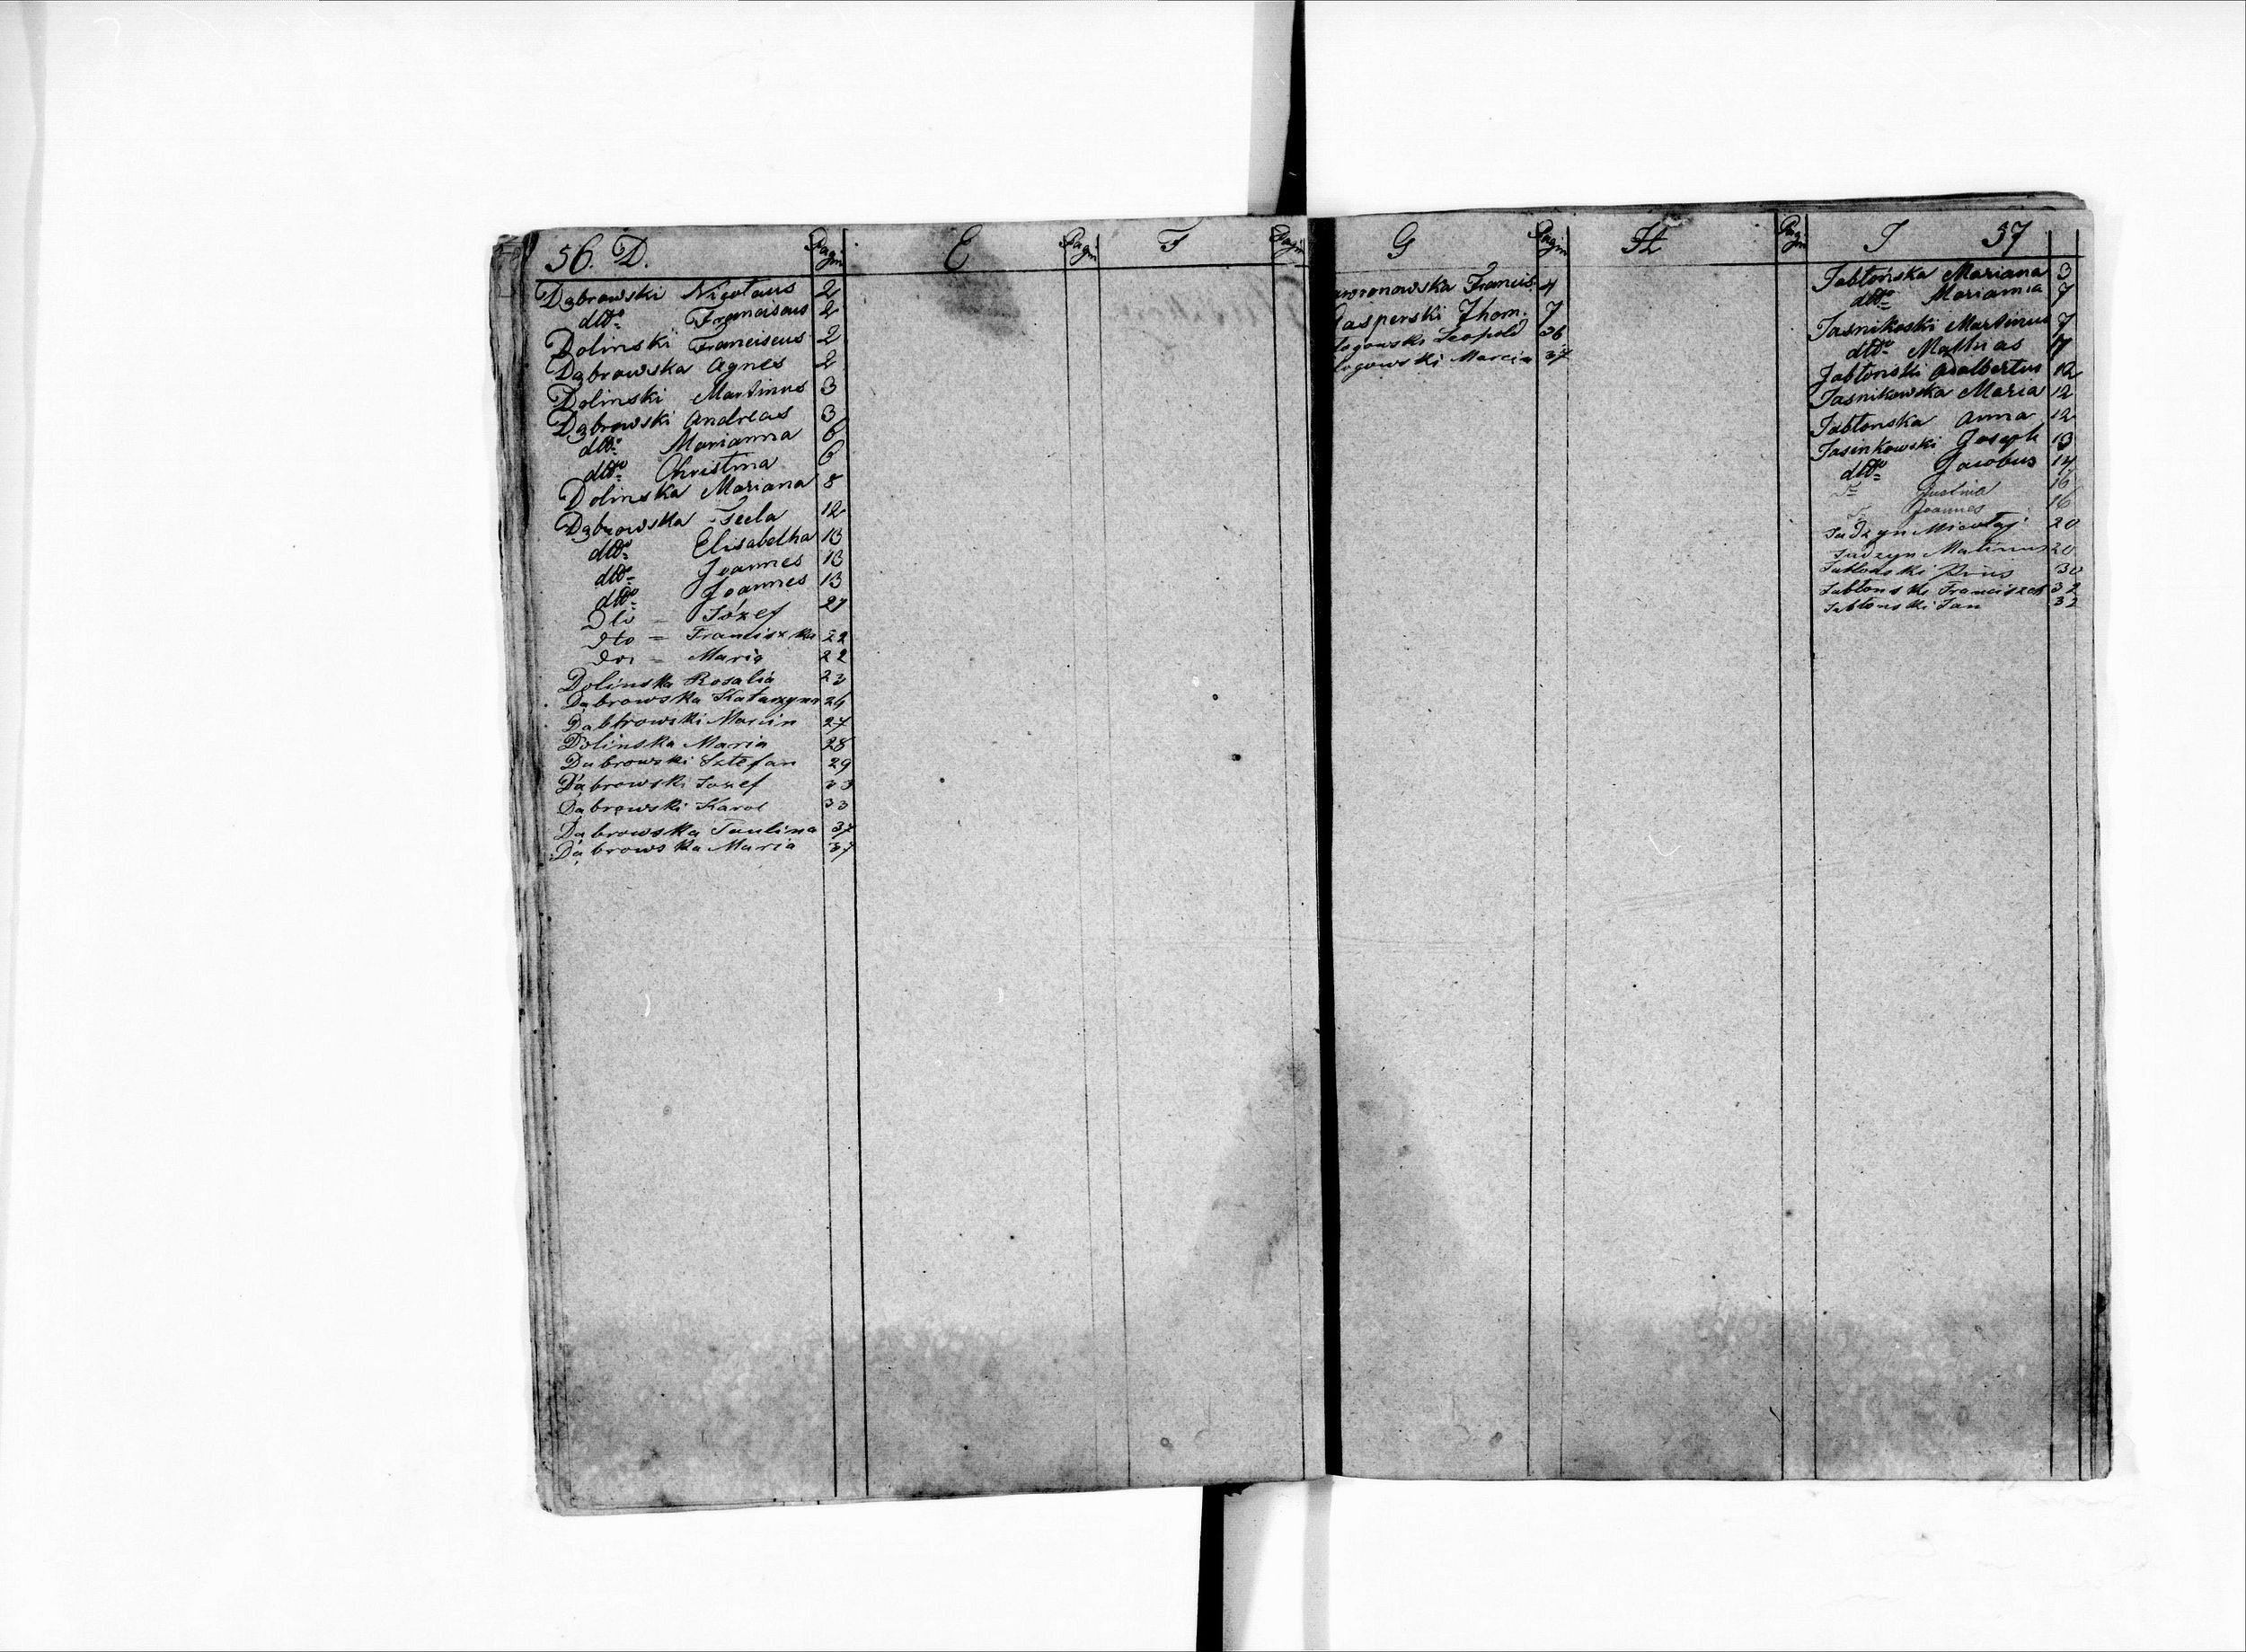 56. D. Pagin
Dąbrowski Nicolaus 2
dtto Franciscus 2
Dolinski Franciscus 2
Dąbrowska Agnes 2
Dolinski Martinus 3
Dąbrowski Andreas 3
dtto Marianna 6
dtto Christina 6
Dolinska Mariana 8
Dąbrowska Tecla 12
dtto Elisabetha 13
dtto Joannes 13
dtto Joannes 13
Dto = Józef 21
Dto = Franciszka 22
Maria 22
Dolinska Rosalia 23
Dąbrowska Katarzyna 26
Dąbrowski Marcin 27
Dolinska Maria 28
Dabrowski Sztefan 29
Dąbrowski Jozef 33
Dąbrowski Karol 33
Dąbrowska Paulina 37
Dąbrowska Maria 37
E Pagin
F Pagin
G Pagin
awronowska Francis. 4
Gasperski Thom. 7
łogowski Leopold 36
łogowski Marcin 37
H Pagin
I 57
Jabłońska Mariana 3
dtto Marianna 7
Jasnikoski Martinus 7
dtto Mathias 17
Jabłonski Adalbertus 12
Jasnikowska Maria 12
Jabłonska Anna 12
Jasinkowski Joseph 13
dtto Jacobus 14
Justina 16
Joannes 16
Judzyn Mikołaj 20
Judzyn Matinus 20
Jabłonski Pius 30
Jabłonski Franciszek 32
Jabłonski Jan 32